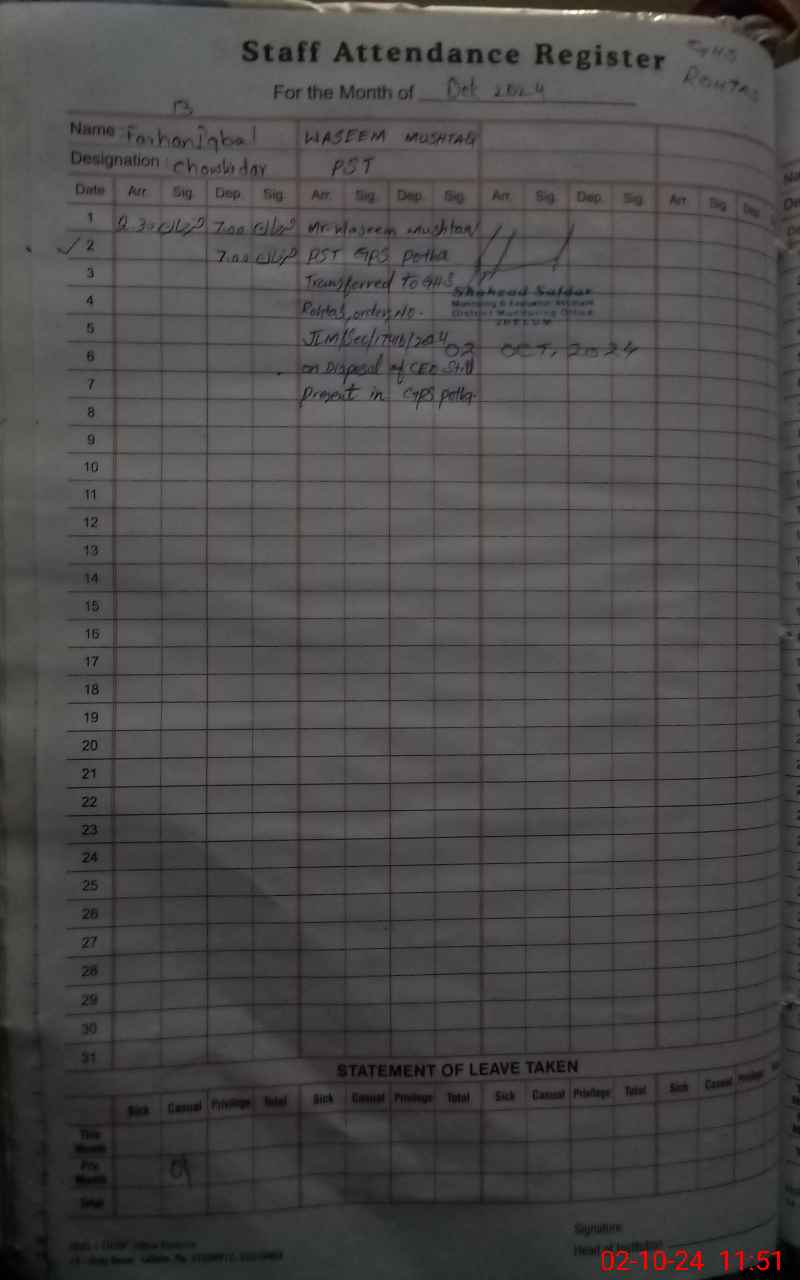 Staff Attendance Register
GHS
ROHTAS
For the Month of Oct 2024
13
Name : Farhan Iqbal WASEEM MUSHTAQ
Designation : Chowkidar PST
Date Arr. Sig. Dep. Sig. Arr. Sig. Dep. Sig. Arr. Sig. Dep. Sig. Arr. Sig. Dep.
1 2.30 فرحان 7.00 فرحان Mr. Waseem Mushtaq
✓ 2 7.00 فرحان PST GPS Potha
3 Transferred To GHS
Shahzad Safdar
4 Rohtas, order No.
District Monitoring Office
JHELUM
5 JLM/Sec/1746/2024
02 OCT, 2024
6 on Disposal of CEO Still
7 Present in GPS potha.
8
9
10
11
12
13
14
15
16
17
18
19
20
21
22
23
24
25
26
27
28
29
30
31
STATEMENT OF LEAVE TAKEN
Sick Casual Privilege Total Sick Casual Privilege Total Sick Casual Privilege Total Sick Casual Privilege
This Month
Pre. Month 9
Total
Signature
Head of Institution
02-10-24 11:51